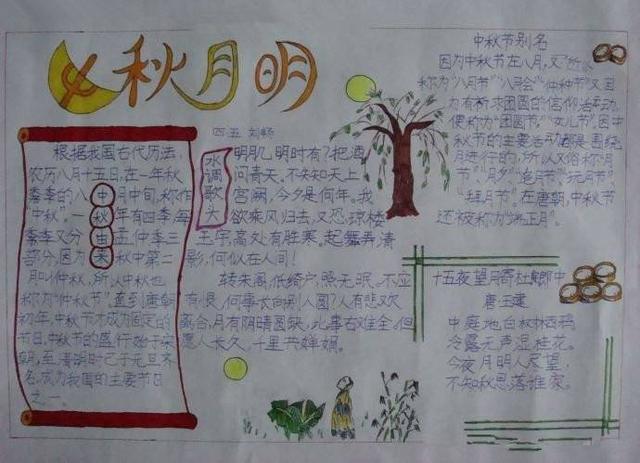 中秋月明
四.五 刘畅
中秋由来
根据我国古代历法,
农历八月十五日,在一年秋
季的八月中旬,称作
“中秋”。一年有四季,每
季又分孟、仲、季三
部分,因为秋中第二
月叫仲秋,所以中秋也
称为“仲秋节”直到唐朝
初年,中秋节才成为固定的
节日,中秋节的盛行始于宋
朝,至清明时已于元旦齐
名,成为我国的主要节日
之一。
水调歌
明月几时有?把酒
问青天。不知天上
宫阙,今夕是何年。我
欲乘风归去,又恐琼楼
玉宇,高处有胜寒。起舞弄清
影,何似在人间!
转朱阁,低绮户,照无眠。不应
有恨,何事长向别人圆?人有悲欢
离合,月有阴晴圆缺,此事古难全。但
愿人长久,千里共婵娟。
中秋节别名
因为中秋节在八月,又
称为“八月节”“八月会”“仲秋节”又因
为有祈求团圆的信仰活动,
便称为“团圆节”“女儿节”因中
秋节的主要活动都是围绕
月进行的,所以又俗称“月
节”“月夕”“追月节”“玩月节”
“拜月节”。在唐朝,中秋节
还被称为“端正月”。
十五夜望月寄杜郎中
唐王建
中庭地白树栖鸦
冷露无声湿桂花。
今夜月明人尽望,
不知秋思落谁家。